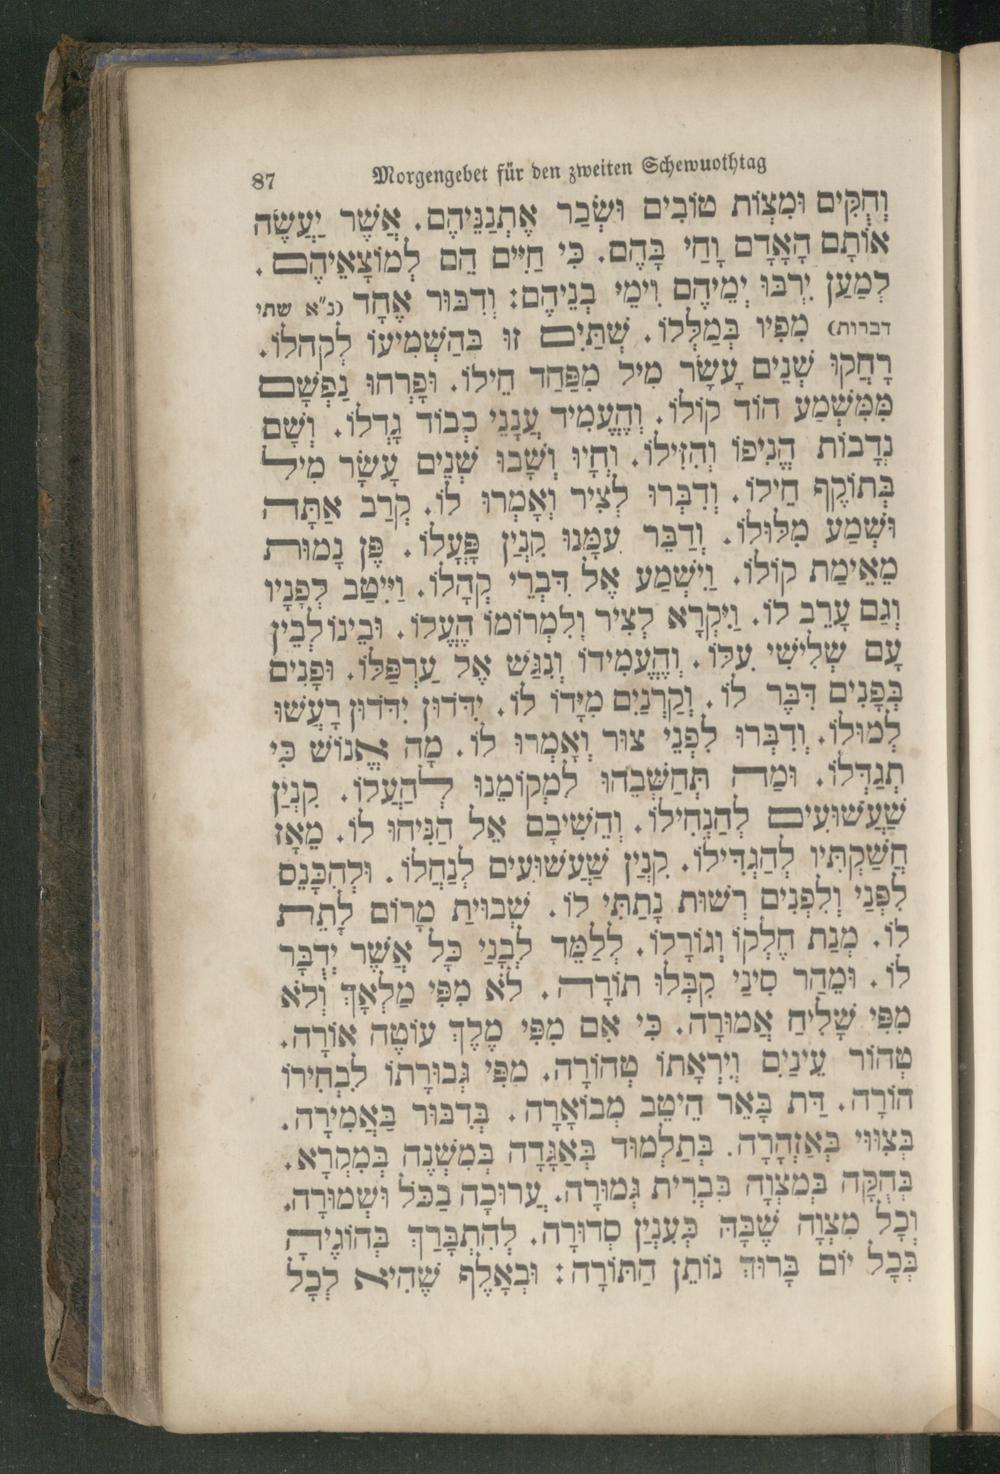 87 Morgengebet für den zweiten Schewuothtag
וְחֻקִּים וּמִצְוֹת טוֹבִים וּשְׂכַר אֶתְנַנֵּיהֶם. אֲשֶׁר יַעֲשֶׂה
אוֹתָם הָאָדָם וָחַי בָּהֶם. כִּי חַיִּים הֵם לְמוֹצָאֵיהֶם.
לְמַעַן יִרְבּוּ יְמֵיהֶם וִימֵי בְנֵיהֶם: וְדִבּוּר אֶחָד (נ"א שתי
דברות) מִפִּיו בְּמַלְּלוֹ. שְׁתַּיִם זוּ בְּהַשְׁמִיעוֹ לְקַהֲלוֹ.
רָחֲקוּ שְׁנֵים עָשָׂר מִיל מִפַּחַד חֵילוֹ. וּפָרְחוּ נַפְשָׁם
מִמִּשְׁמַע הוֹד קוֹלוֹ. וְהֶעֱמִיד עַנְנֵי כְבוֹד גָּדְלוֹ. וְשָׁם
נְדָבוֹת הֱנִיפוֹ וְהִזִּילוֹ. וְחָיוּ וְשָׁבוּ שְׁנֵים עָשָׂר מִיל
בְּתוֹקֶף חֵילוֹ. וְדִבְּרוּ לְצִיר וְאָמְרוּ לוֹ. קְרַב אַתָּה
וּשְׁמַע מִלּוּלוֹ. וְדַבֵּר עִמָּנוּ קִנְיַן פָּעֳלוֹ. פֶּן נָמוּת
מֵאֵימַת קוֹלוֹ. וַיִּשְׁמַע אֶל דִּבְרֵי קְהָלוֹ. וַיִּיטַב לְפָנָיו
וְגַם עָרֵב לוֹ. וַיִּקְרָא לְצִיר וְלִמְרוֹמוֹ הֶעֱלוֹ. וּבֵינוֹ לְבֵין
עָם שְׁלִישִׁי עִלּוֹ. וְהֶעֱמִידוֹ וְנִגַּשׁ אֶל עַרְפִלּוֹ. וּפָנִים
בְּפָנִים דִּבֶּר לוֹ. וְקַרְנַיִם מִיָּדוֹ לוֹ. יִדּוֹדוּן יִדּוֹדוּן רָעֲשׁוּ
לְמוּלוֹ. וְדִבְּרוּ לִפְנֵי צוּר וְאָמְרוּ לוֹ. מָה אֱנוֹשׁ כִּי
תְגַדְּלוֹ. וּמַה תְּחַשְּׁבֵהוּ לִמְקוֹמֵנוּ לְהַעֲלוֹ. קִנְיַן
שַׁעֲשׁוּעִים לְהַנְחִילוֹ. וְהֵשִׁיבָם אֵל הַנִּיחוּ לוֹ. מֵאָז
חֲשַׁקְתִּיו לְהַגְדִּילוֹ. קִנְיַן שַׁעֲשׁוּעִים לְנַחֲלוֹ. וּלְהִכָּנֵס
לִפְנַי וְלִפְנִים רְשׁוּת נָתַתִּי לוֹ. שְׁבוּיַת מָרוֹם לָתֵת
לוֹ. מְנַת חֶלְקוֹ וְגוֹרָלוֹ. לְלַמֵּד לְבָנַי כָּל אֲשֶׁר יְדֻבָּר
לוֹ. וּמֵהַר סִינַי קִבְּלוּ תוֹרָה. לֹא מִפִּי מַלְאָךְ וְלֹא
מִפִּי שָׁלִיחַ אֲמוּרָה. כִּי אִם מִפִּי מֶלֶךְ עוֹטֶה אוֹרָה.
טְהוֹר עֵינַיִם וְיִרְאָתוֹ טְהוֹרָה. מִפִּי גְּבוּרָתוֹ לִבְחִירוֹ
הוֹרָה. דַּת בָּאֵר הֵיטֵב מְבוֹאָרָה. בְּדִבּוּר בַּאֲמִירָה.
בְּצִוּוּי בְּאַזְהָרָה. בְּתַלְמוּד בְּאַגָּדָה בְּמִשְׁנָה בְּמִקְרָא.
בְּחֻקָּה בְּמִצְוָה בִּבְרִית גְּמוּרָה. עֲרוּכָה בַכֹּל וּשְׁמוּרָה.
וְכָל מִצְוָה שֶׁבָּהּ כְּעִנְיַן סְדוּרָה. לְהִתְבָּרַךְ בְּהוֹגֶיהָ
בְּכָל יוֹם בָּרוּךְ נוֹתֵן הַתּוֹרָה: וּבְאָלֶף שֶׁהִיא לְכָל